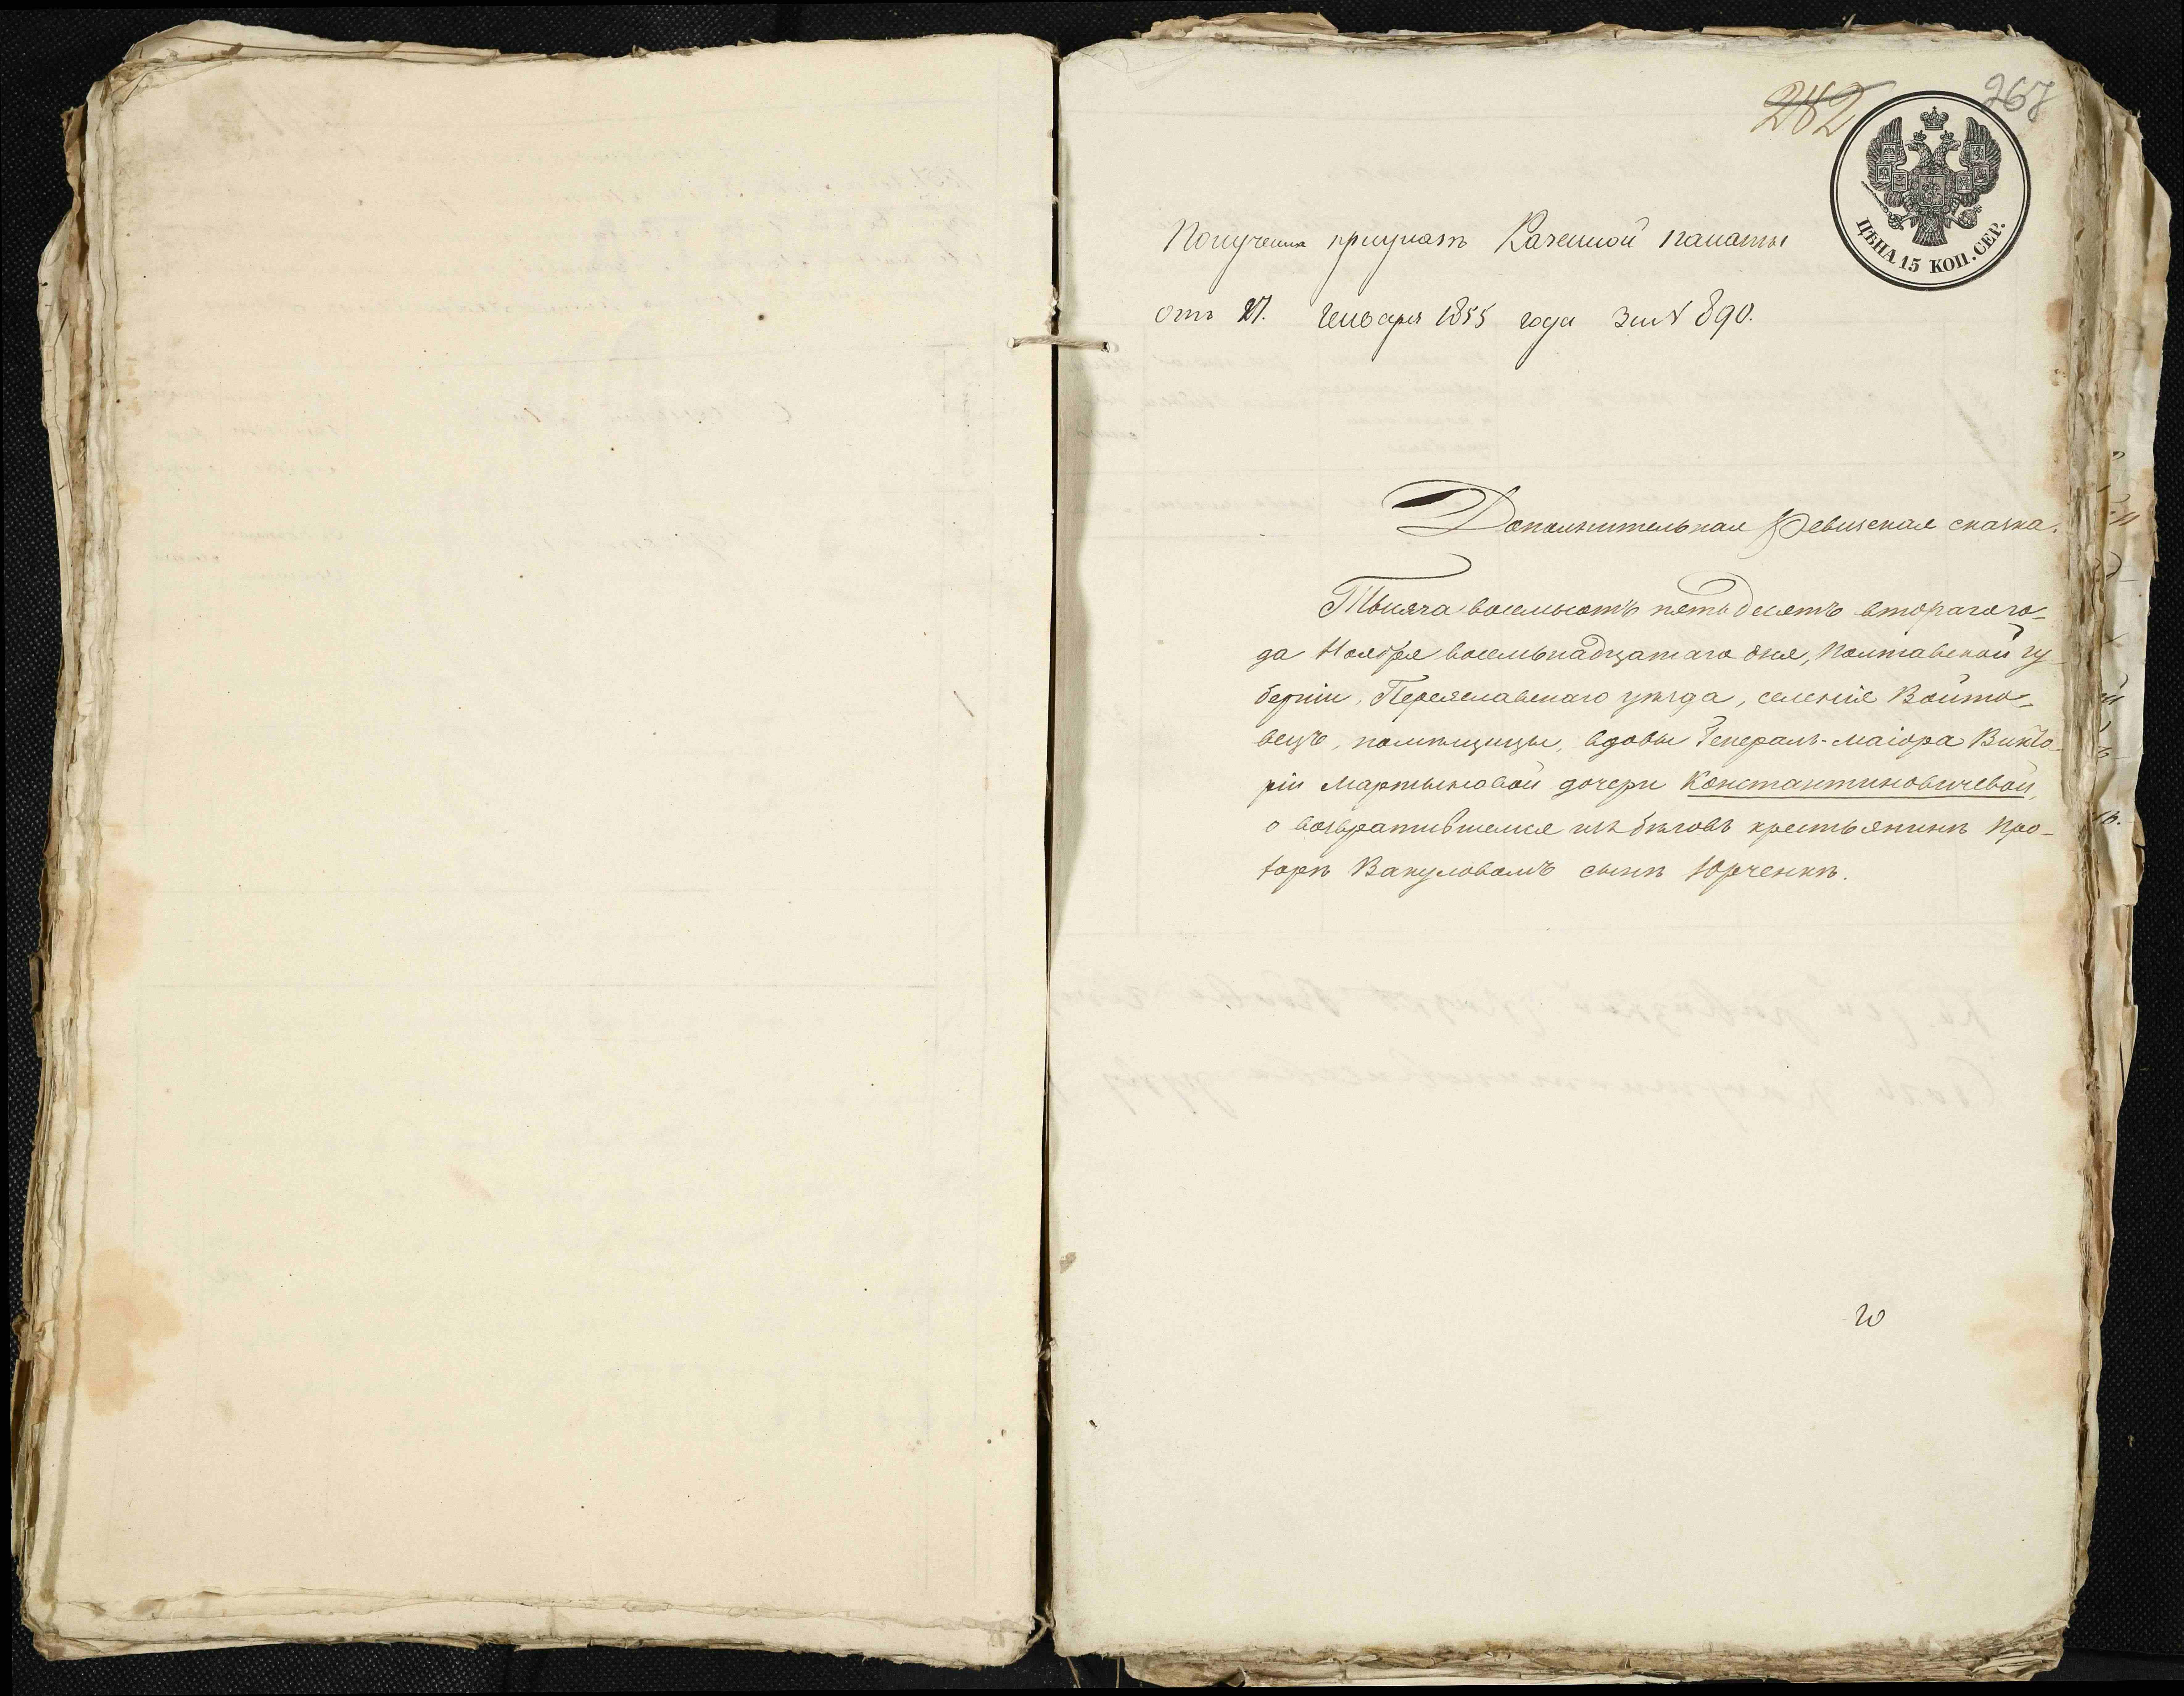 282
267
ЦѢНА 15 КОП. СЕР.
Получена при указѣ Казенной палаты
отъ 27. Генваря 1855 года за № 890.
Дополнительная Ревизская сказка.
Тысяча восемьсотъ пятьдесятъ втораго го-
да Ноября восемьнадцатаго дня, Полтавской гу-
берніи, Переяславскаго уѣзда, селенія Войто-
вецъ, помѣщицы, вдовы Генералъ-маіора Викто-
ріи Мартыновой дочери Константиновичевой,
о возвратившемся изъ бѣговъ крестьянинѣ Про-
хорѣ Вакуловомъ сынѣ Юрченкѣ.